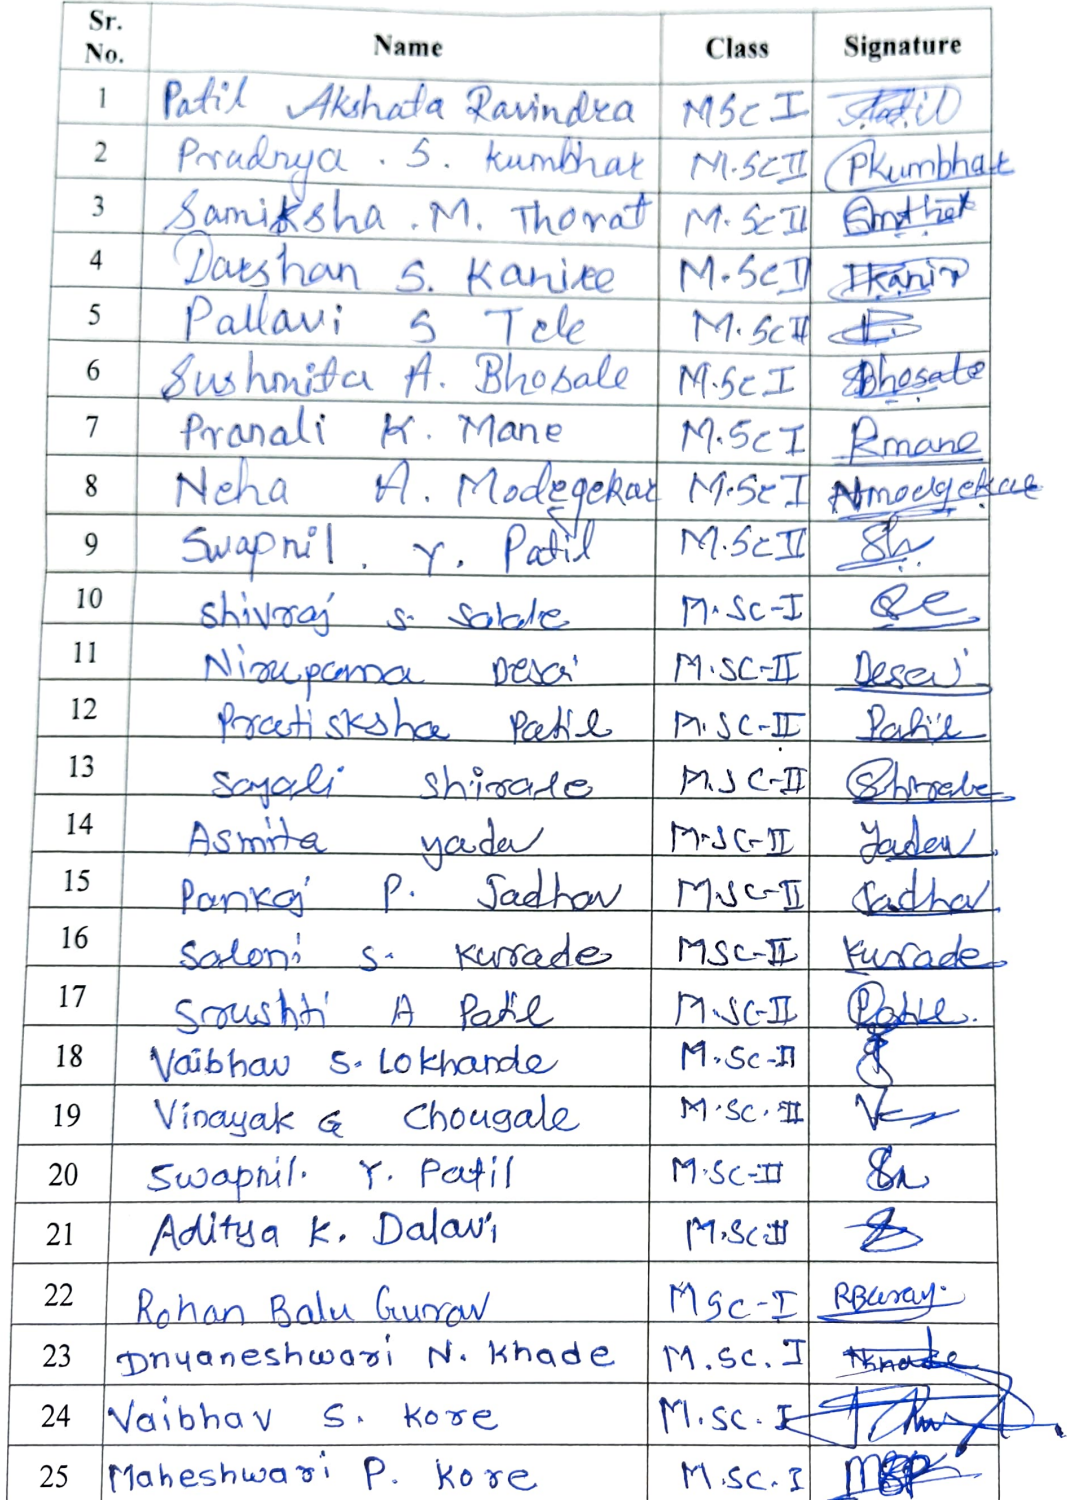 Sr. No. Name Class Signature
1 Patil Akshata Ravindra MSc I Patil
2 Pradnya . S. Kumbhar M.Sc II PKumbhar
3 Samiksha . M. Thorat M.Sc II
4 Darshan S. Kanire M.Sc II
5 Pallavi S Tele M.Sc II
6 Sushmita A. Bhosale M.Sc I Bhosale
7 Pranali K. Mane M.Sc I Rmane
8 Neha A. Modegekar M.Sc I Nmodgekar
9 Swapnil . Y. Patil M.Sc II
10 Shivraj S. Salale M.SC-I
11 Nirupama Desai M.SC-II Desai
12 Pratisksha Patil M.SC-II Patil
13 Sayali Shirale M.SC-II Shirale
14 Asmita yadav M.SC-II Yadav
15 Pankaj P. Jadhav M.SC-II Jadhav
16 Saloni S. Kurade MSC-II Kurade
17 Srushti A Patil M.SC-II Patil.
18 Vaibhav S. Lokhande M.Sc-II
19 Vinayak G Chougale M.SC.II
20 Swapnil. Y. Patil M.SC-II
21 Aditya K. Dalavi M.Sc.II
22 Rohan Balu Gurav MSC-I
23 Dnyaneshwari N. Khade M.SC.I
24 Vaibhav S. Kore M.SC.I
25 Maheshwari P. Kore M.SC.I